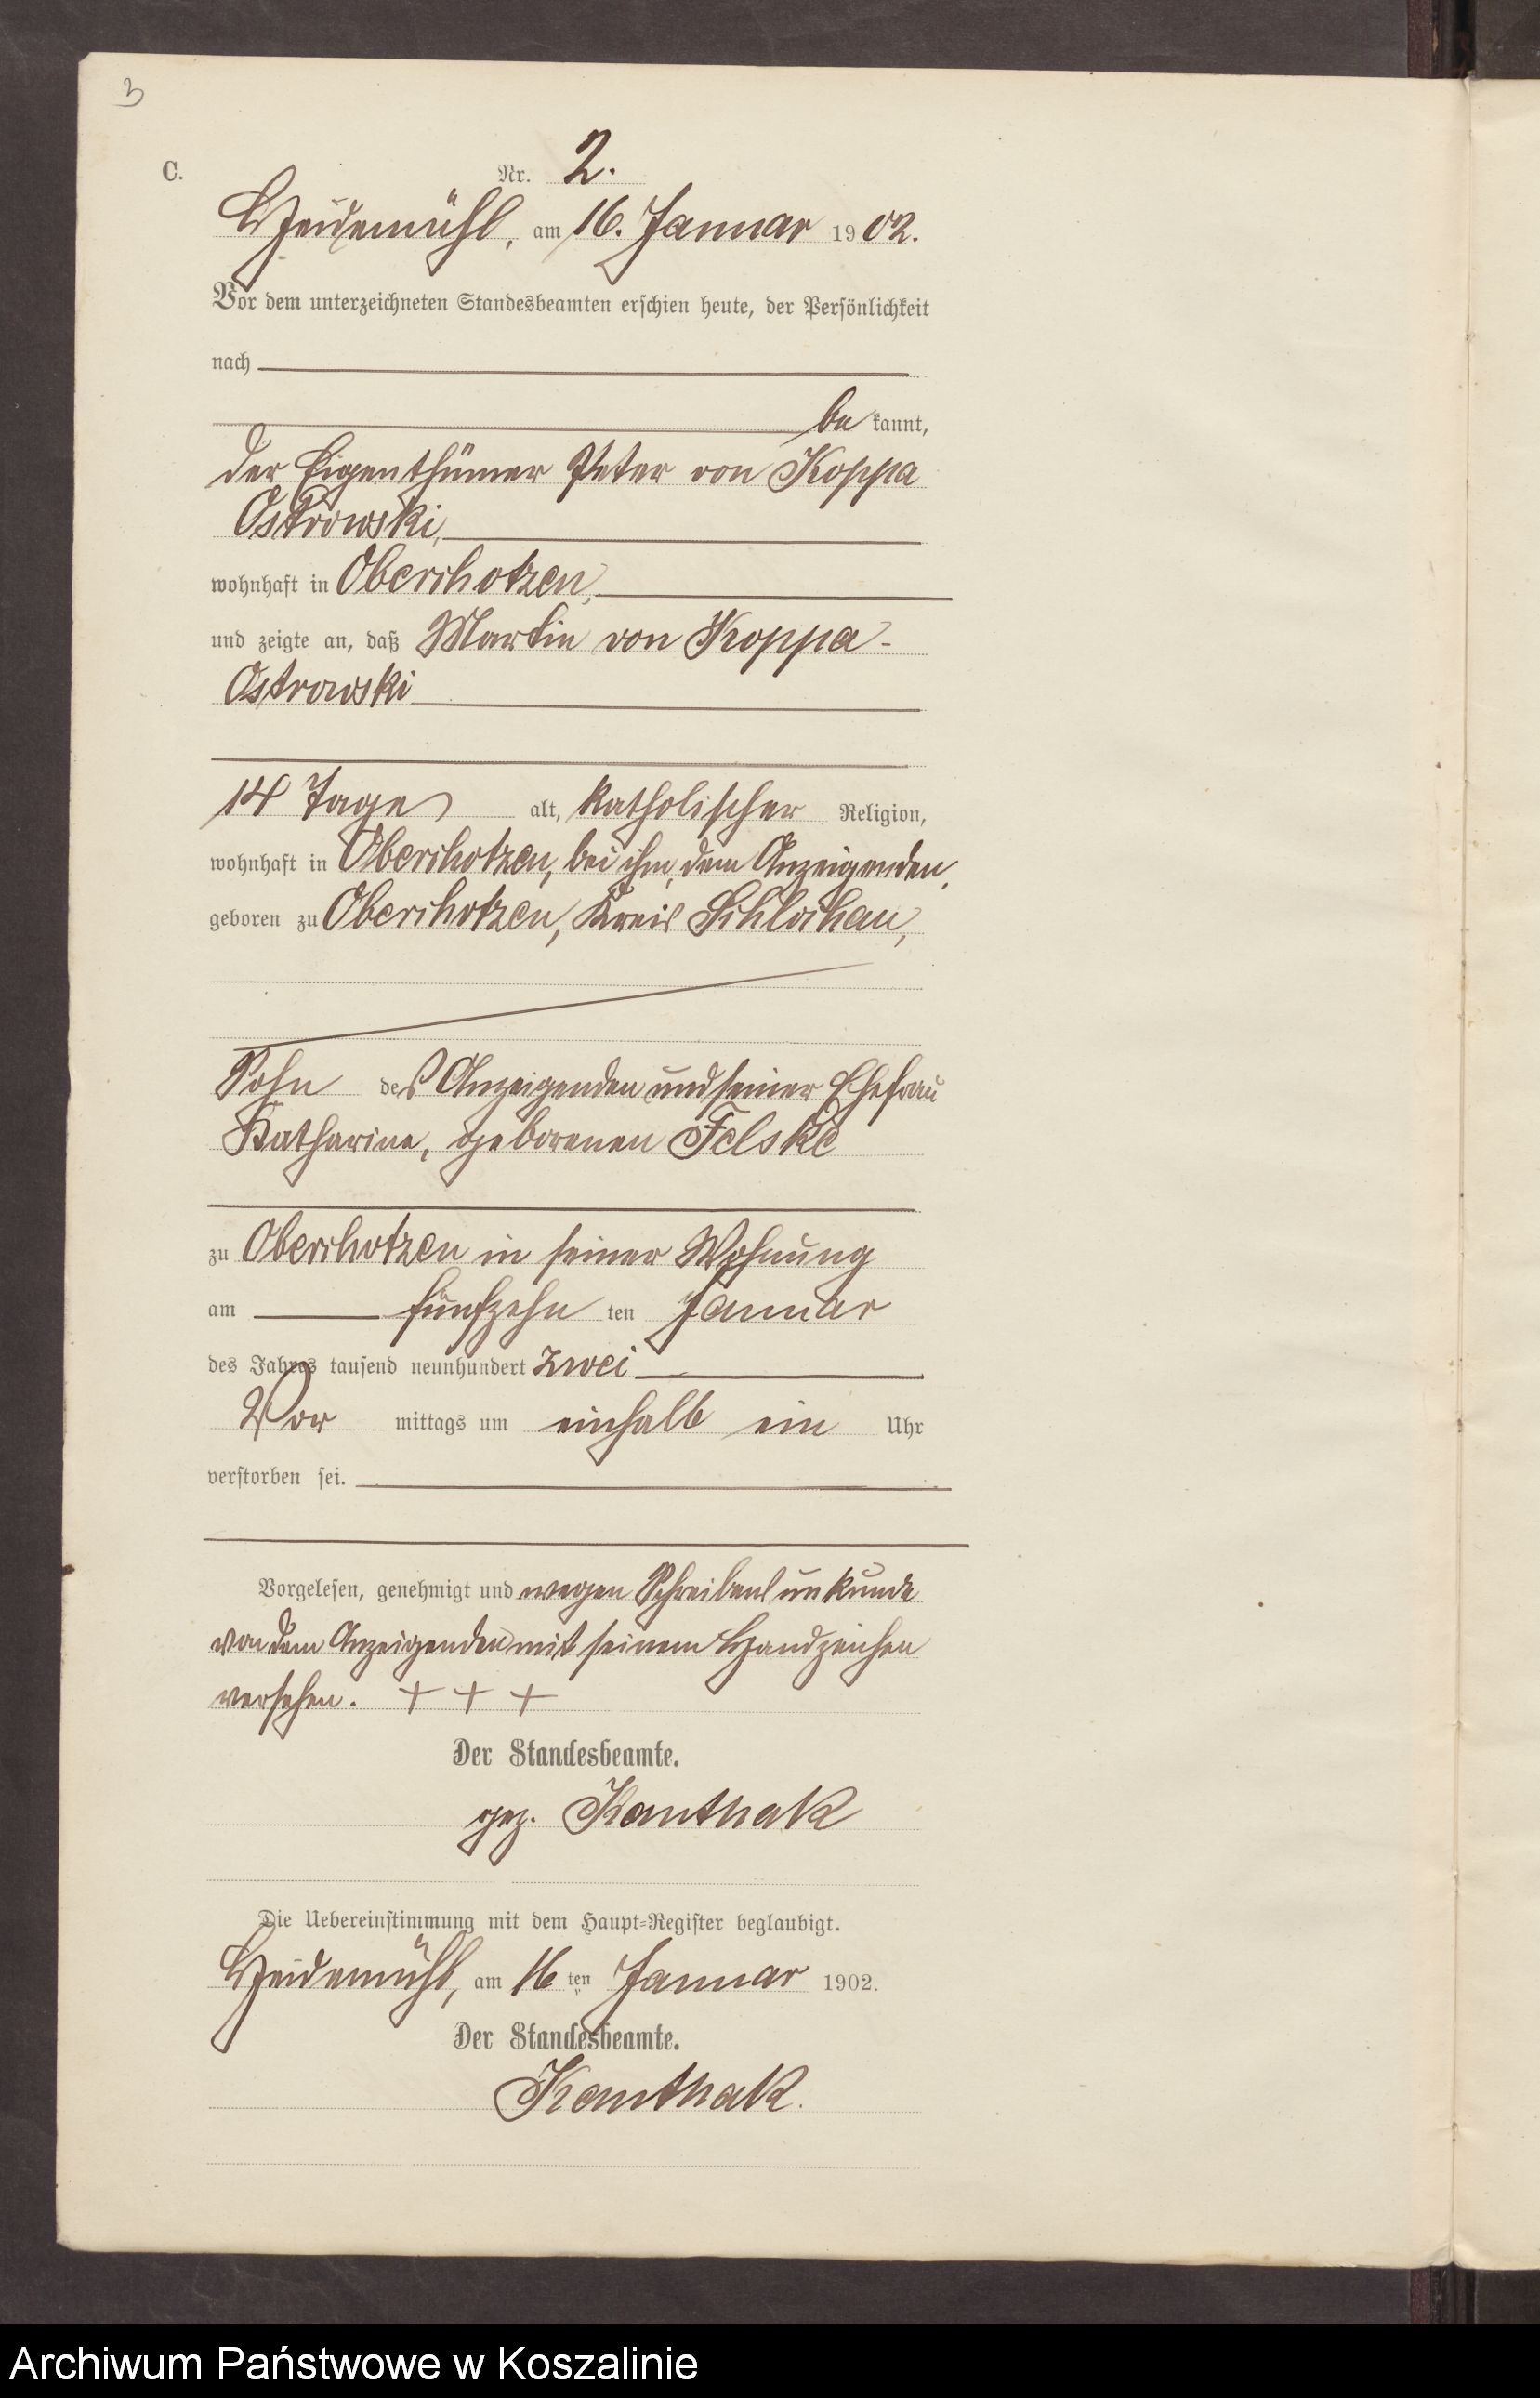 3
C. Nr. 2.
Heidemühl, am 16. Januar 1902.
Vor dem unterzeichneten Standesbeamten erschien heute, der Persönlichkeit
nach
bekannt,
der Eigenthümer Peter von Koppa
Ostrowski,
wohnhaft in Oberchotzen,
und zeigte an, daß Martin von Koppa-
Ostrowski
14 Tage alt, katholischer Religion,
wohnhaft in Oberchotzen, bei ihm, dem Anzeigenden,
geboren zu Oberchotzen, Kreis Schlochau,
Sohn des Anzeigenden und seiner Ehefrau
Katharine, geborenen Felske
zu Oberchotzen in seiner Wohnung
am fünfzehn ten Januar
des Jahres tausend neunhundert zwei
Vor mittags um einhalb ein Uhr
verstorben sei.
Vorgelesen, genehmigt und wegen Schreibensunkunde
von dem Anzeigenden mit seinem Handzeichen
versehen. + + +
Der Standesbeamte.
gez. Kanthak
Die Uebereinstimmung mit dem Haupt-Register beglaubigt.
Heidemühl, am 16 ten Januar 1902.
Der Standesbeamte.
Kanthak.
Archiwum Państwowe w Koszalinie